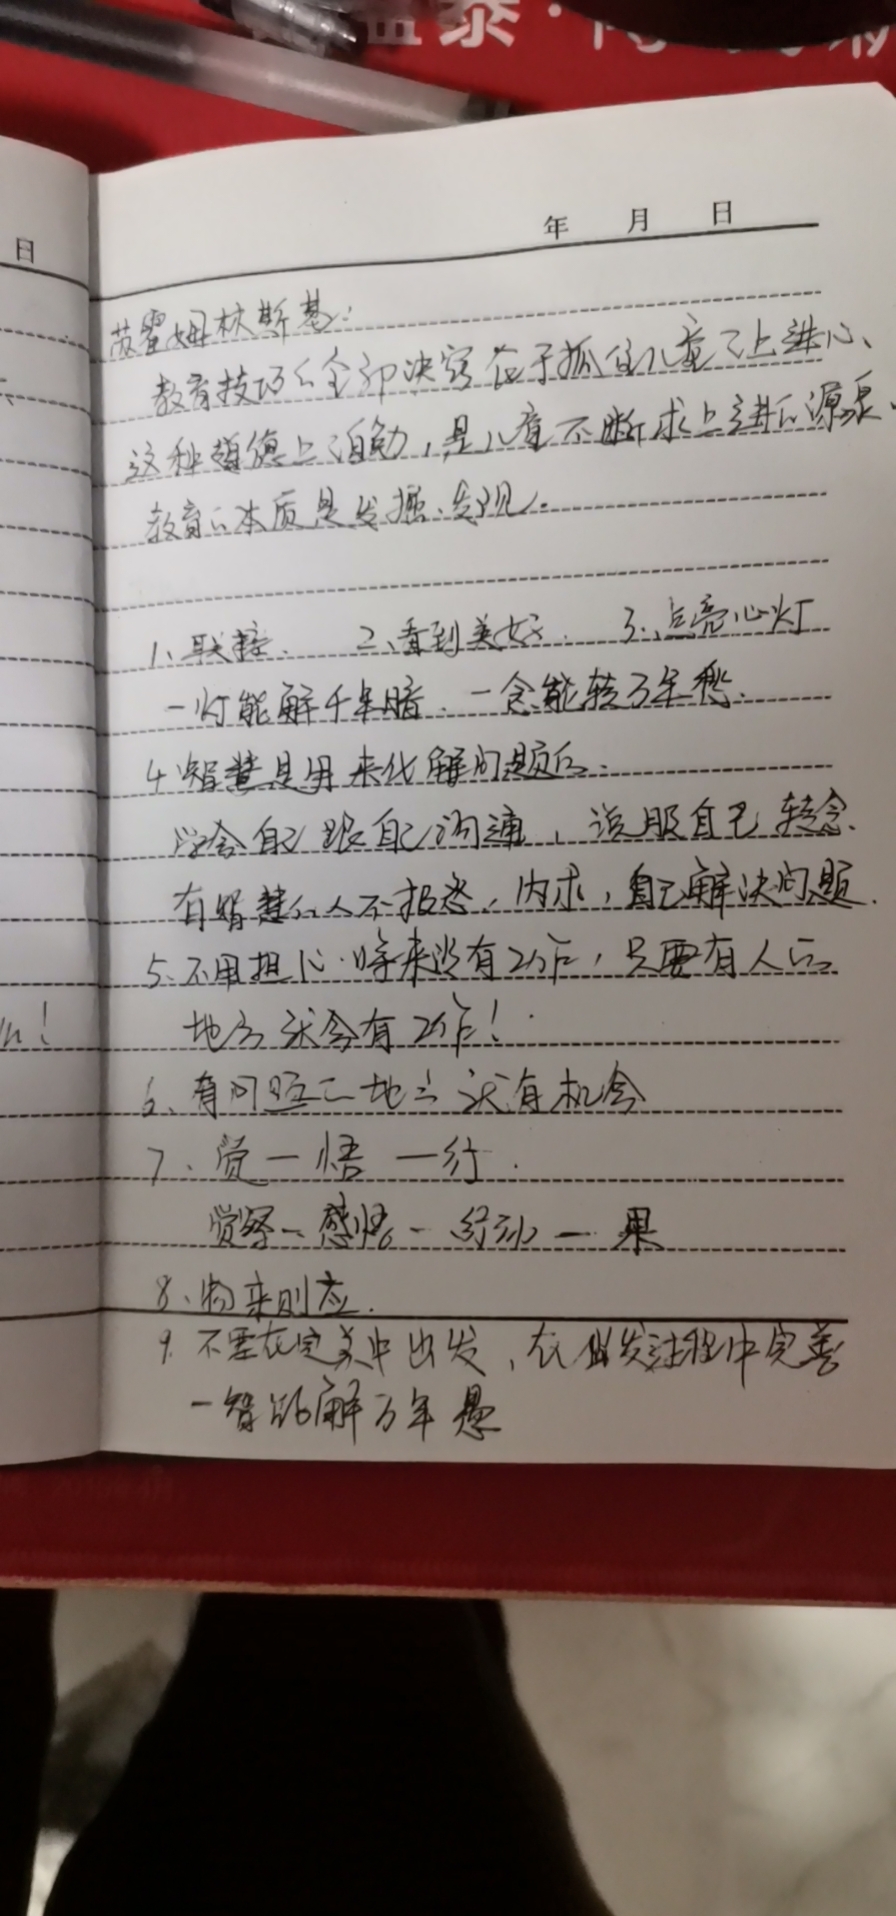 泰·
年 月 日
日
苏霍姆林斯基:
教育技巧的全部决窍在于抓住儿童之上进心、
这种道德上的自勉,是儿童不断求上进的源泉。
教育的本质是发掘、发现。
1、联接、 2、看到美好. 3、点亮心灯
一灯能解千年暗.一念能转万年愁.
4、智慧是用来化解问题的.
学会自己跟自己沟通,说服自己转念.
有智慧的人不抱怨,内求,自己解决问题.
5、不用担心.将来没有工作,只要有人的
地方就会有工作!
6、有问题的地方就有机会
7、觉一悟一行.
觉察一感悟一行动一果
8、物来则应.
9.不要在完美中出发,在出发过程中完善
一智能解万年愚
!